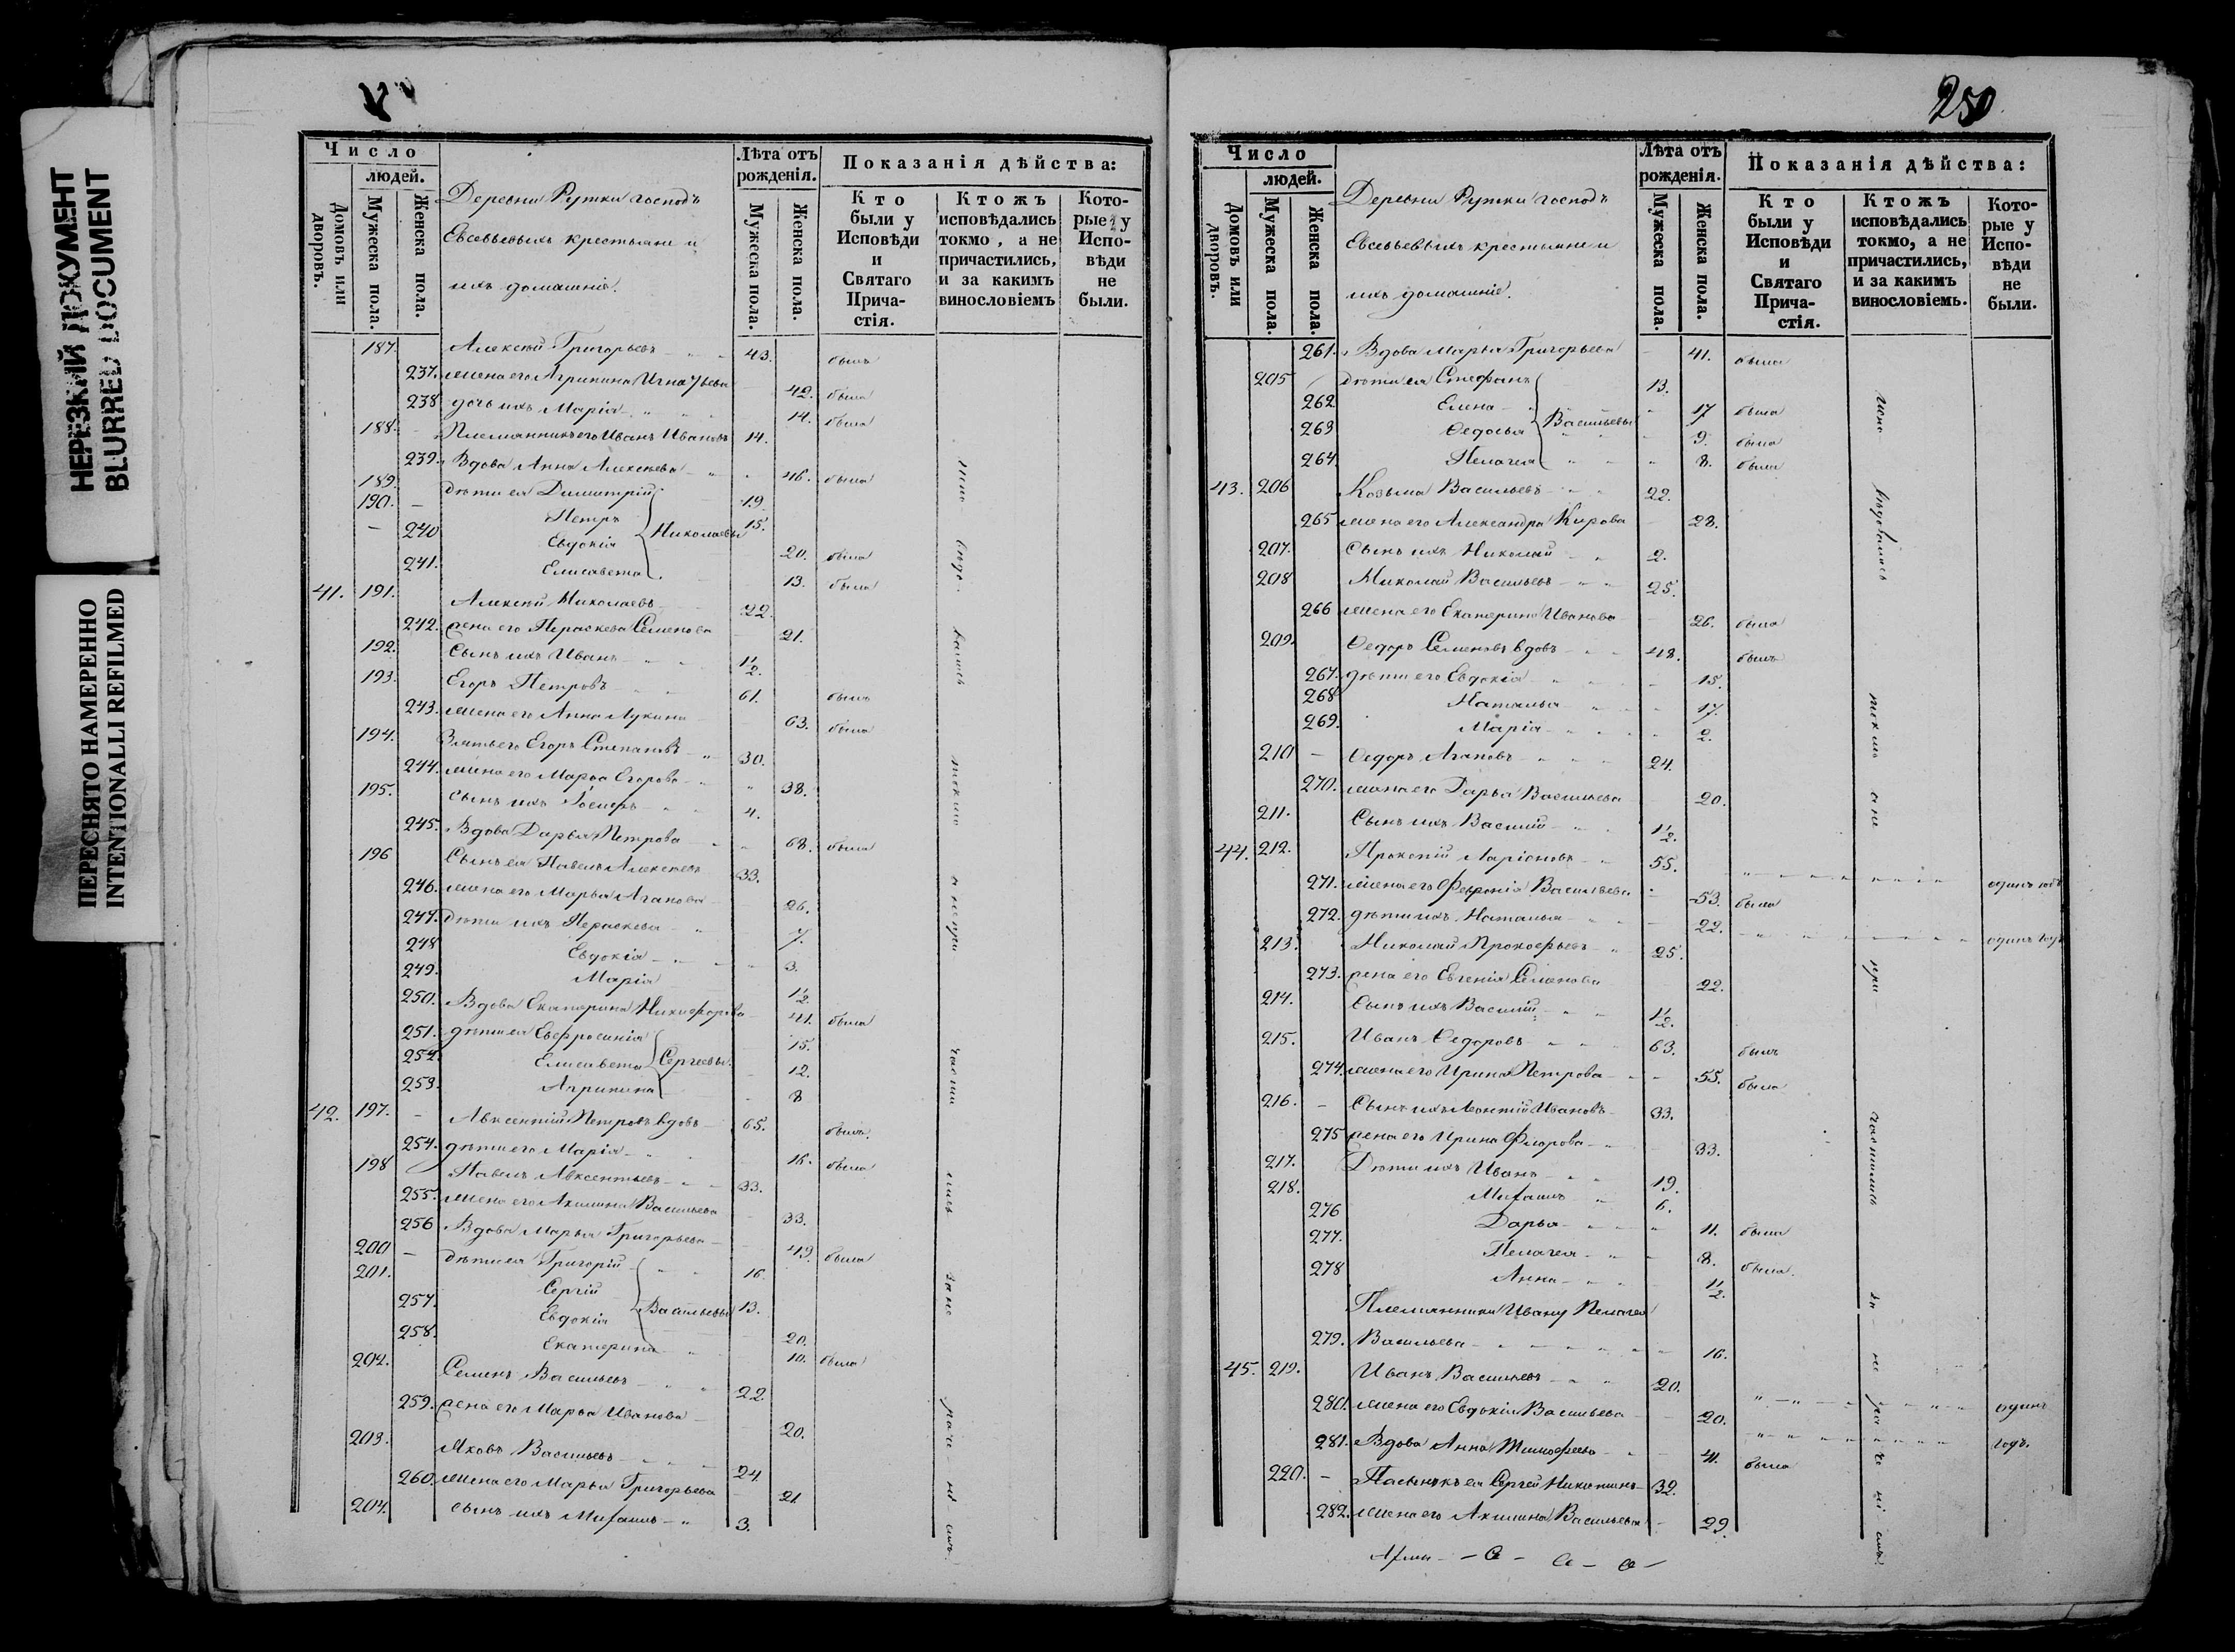 НЕРЕЗКИЙ ДОКУМЕНТ
BLURRED DOCUMENT
ПЕРЕСНЯТО НАМЕРЕННО
INTENTIONALLI REFILMED
Число
людей.
Домовъ или дворовъ.
Мужеска пола.
Женска пола.
Деревни Рутки господъ
Евсевьевыхъ крестьяне и
ихъ домашніе.
Лѣта отъ рожденія.
Мужеска пола.
Женска пола.
Показанія дѣйства:
Кто были у Исповѣди и Святаго Прича-стія.
Ктожъ исповѣдались токмо, а не причастились, и за какимъ винословіемъ
Кото-рые у Испо-вѣди не были.
187. Алексѣй Григорьевъ 43. былъ
237. жена его Агрипина Игнатьева 42. была
238 дочь ихъ Марія 14. была
188. Племянникъ его Иванъ Ивановъ 14.
239. Вдова Анна Алексѣева 46. была
189. дѣти ея Димитрій 19.
190. Петръ Николаевы 15.
240 Евдокія 20. была
241. Елисавета 13. была
41. 191. Алексѣй Николаевъ 22.
242. жена его Параскева Семенова 21.
192. Сынъ ихъ Иванъ 1/2.
193. Егоръ Петровъ 61. былъ
243. жена его Анна Лукина 63. была
194. Зять его Егоръ Степановъ 30.
244. жена его Марья Егорова 38.
195. Сынъ ихъ Іосифъ 4.
245. Вдова Дарья Петрова 68. была
196 Сынъ ея Павелъ Алексѣевъ 33.
246. жена его Марья Агапова 26.
247. Дѣти ихъ Параскева 7.
248 Евдокія 3.
249. Марія 1/2.
250. Вдова Екатерина Никифорова 41. была
251. дѣти ея Евфросинія 15.
252. Елисавета Сергѣевы 12.
253. Агрипина 8
42. 197. Авксентій Петровъ вдовъ 65. былъ.
254. дѣти его Марія 16. была
198 Павелъ Авксентьевъ 33.
255. жена его Акилина Васильева 33.
256 Вдова Марья Григорьева 49. была
200 дѣти ея Григорій 16.
201. Сергій Васильевы 13.
257. Евдокія 20.
258. Екатерина 10. была
202. Семенъ Васильевъ 22.
259. жена его Марья Иванова 20.
203. Яковъ Васильевъ 24.
260. жена его Марья Григорьева 21.
204. Сынъ ихъ Михаилъ 3.
250
Число
людей.
Домовъ или дворовъ.
Мужеска пола.
Женска пола.
Деревни Рутки господъ
Евсевьевыхъ крестьяне и
ихъ домашніе.
Лѣта отъ рожденія.
Мужеска пола.
Женска пола.
Показанія дѣйства:
Кто были у Исповѣди и Святаго Прича-стія.
Ктожъ исповѣдались токмо, а не причастились, и за какимъ винословіемъ.
Кото-рые у Испо-вѣди не были.
261. Вдова Марья Григорьева 41. была
205 дѣти ея Стефанъ 13.
262. Елена 17 была
263 Ѳедосья Васильевы 9. была
264. Пелагея 8. была
43. 206 Козьма Васильевъ 22.
265 жена его Александра Кирова 28.
207. Сынъ ихъ Николай 2.
208 Николай Васильевъ 25.
266 жена его Екатерина Иванова 26. была
209. Ѳедоръ Семеновъ вдовъ 48. былъ
267. дѣти его Евдокія 15.
268 Наталья 17.
269. Марія 2.
210 Ѳедоръ Агаповъ 24.
270. жена его Дарья Васильева 20.
211. Сынъ ихъ Василій 1/2.
44. 212. Прокопій Ларіоновъ 55. одинъ годъ
271. жена его Февронія Васильева 53. была
272. дѣти ихъ Наталья 22. одинъ годъ
213. Николай Прокофьевъ 25.
273. жена его Евгенія Семенова 22.
214. Сынъ ихъ Василій 1/2.
215. Иванъ Ѳедоровъ 63. былъ
274. жена его Ирина Петрова 55. была
216. Сынъ ихъ Леонтій Ивановъ 33.
275 жена его Ирина Флорова 33.
217. Дѣти ихъ Иванъ 19.
218. Михаилъ 6.
276 Дарья 11. была
277. Пелагея 8. была.
278 Анна 1/2.
Племянница Ивану Пелагея
279. Васильева 16.
45. 219. Иванъ Васильевъ 20. одинъ
280. жена его Евдокія Васильева 20. годъ.
281. Вдова Анна Тимофѣева 41. была
220. Пасынокъ ея Сергѣй Никитинъ 32.
282. жена его Акилина Васильева 29.